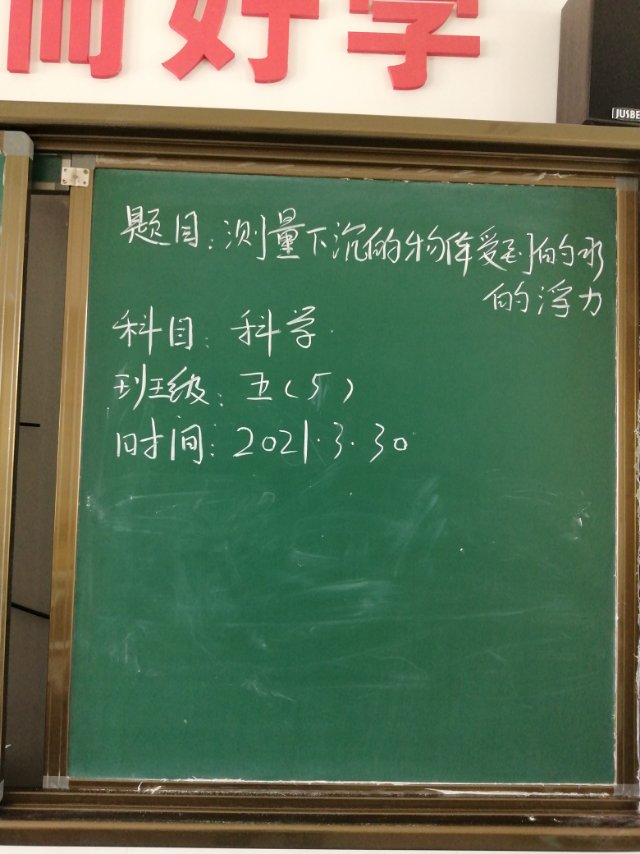 而好学
JUSBE
题目:测量下沉的物体受到的水
的浮力
科目:科学
班级:五(5)
时间:2021.3.30